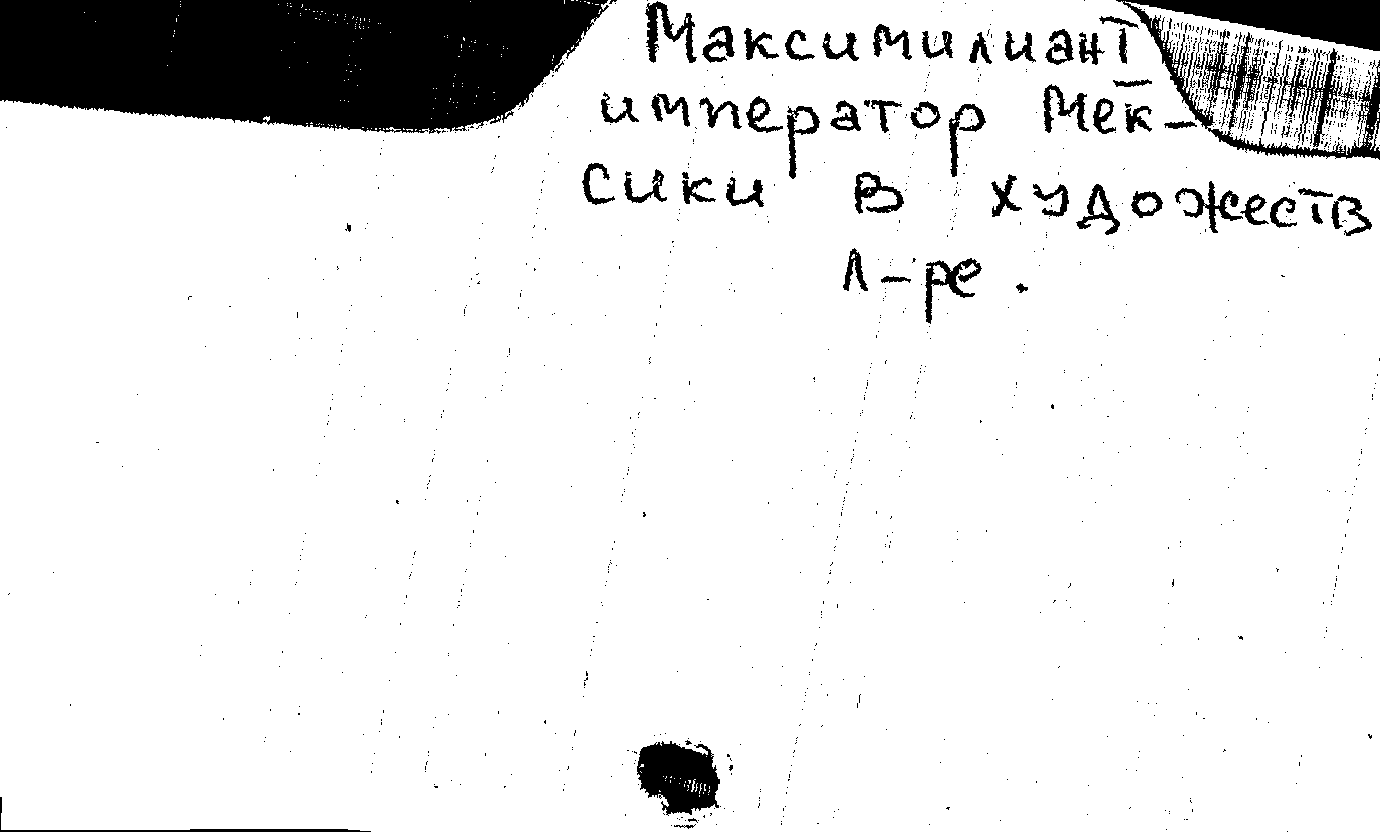 Максимилиант
император Мек-
сики в художеств
л-ре.